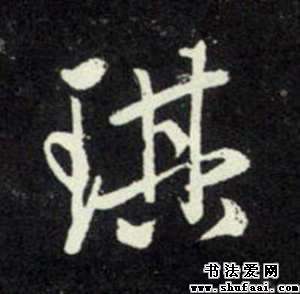 琪
书法爱网
www.shufaai.com